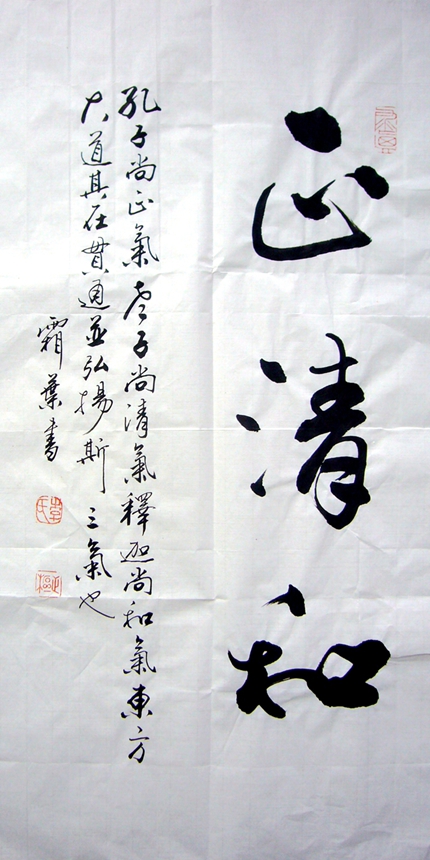 正清和
孔子尚正氣老子尚清氣釋迦尚和氣東方
大道其在貫通並弘揚斯三氣也
霜葉書